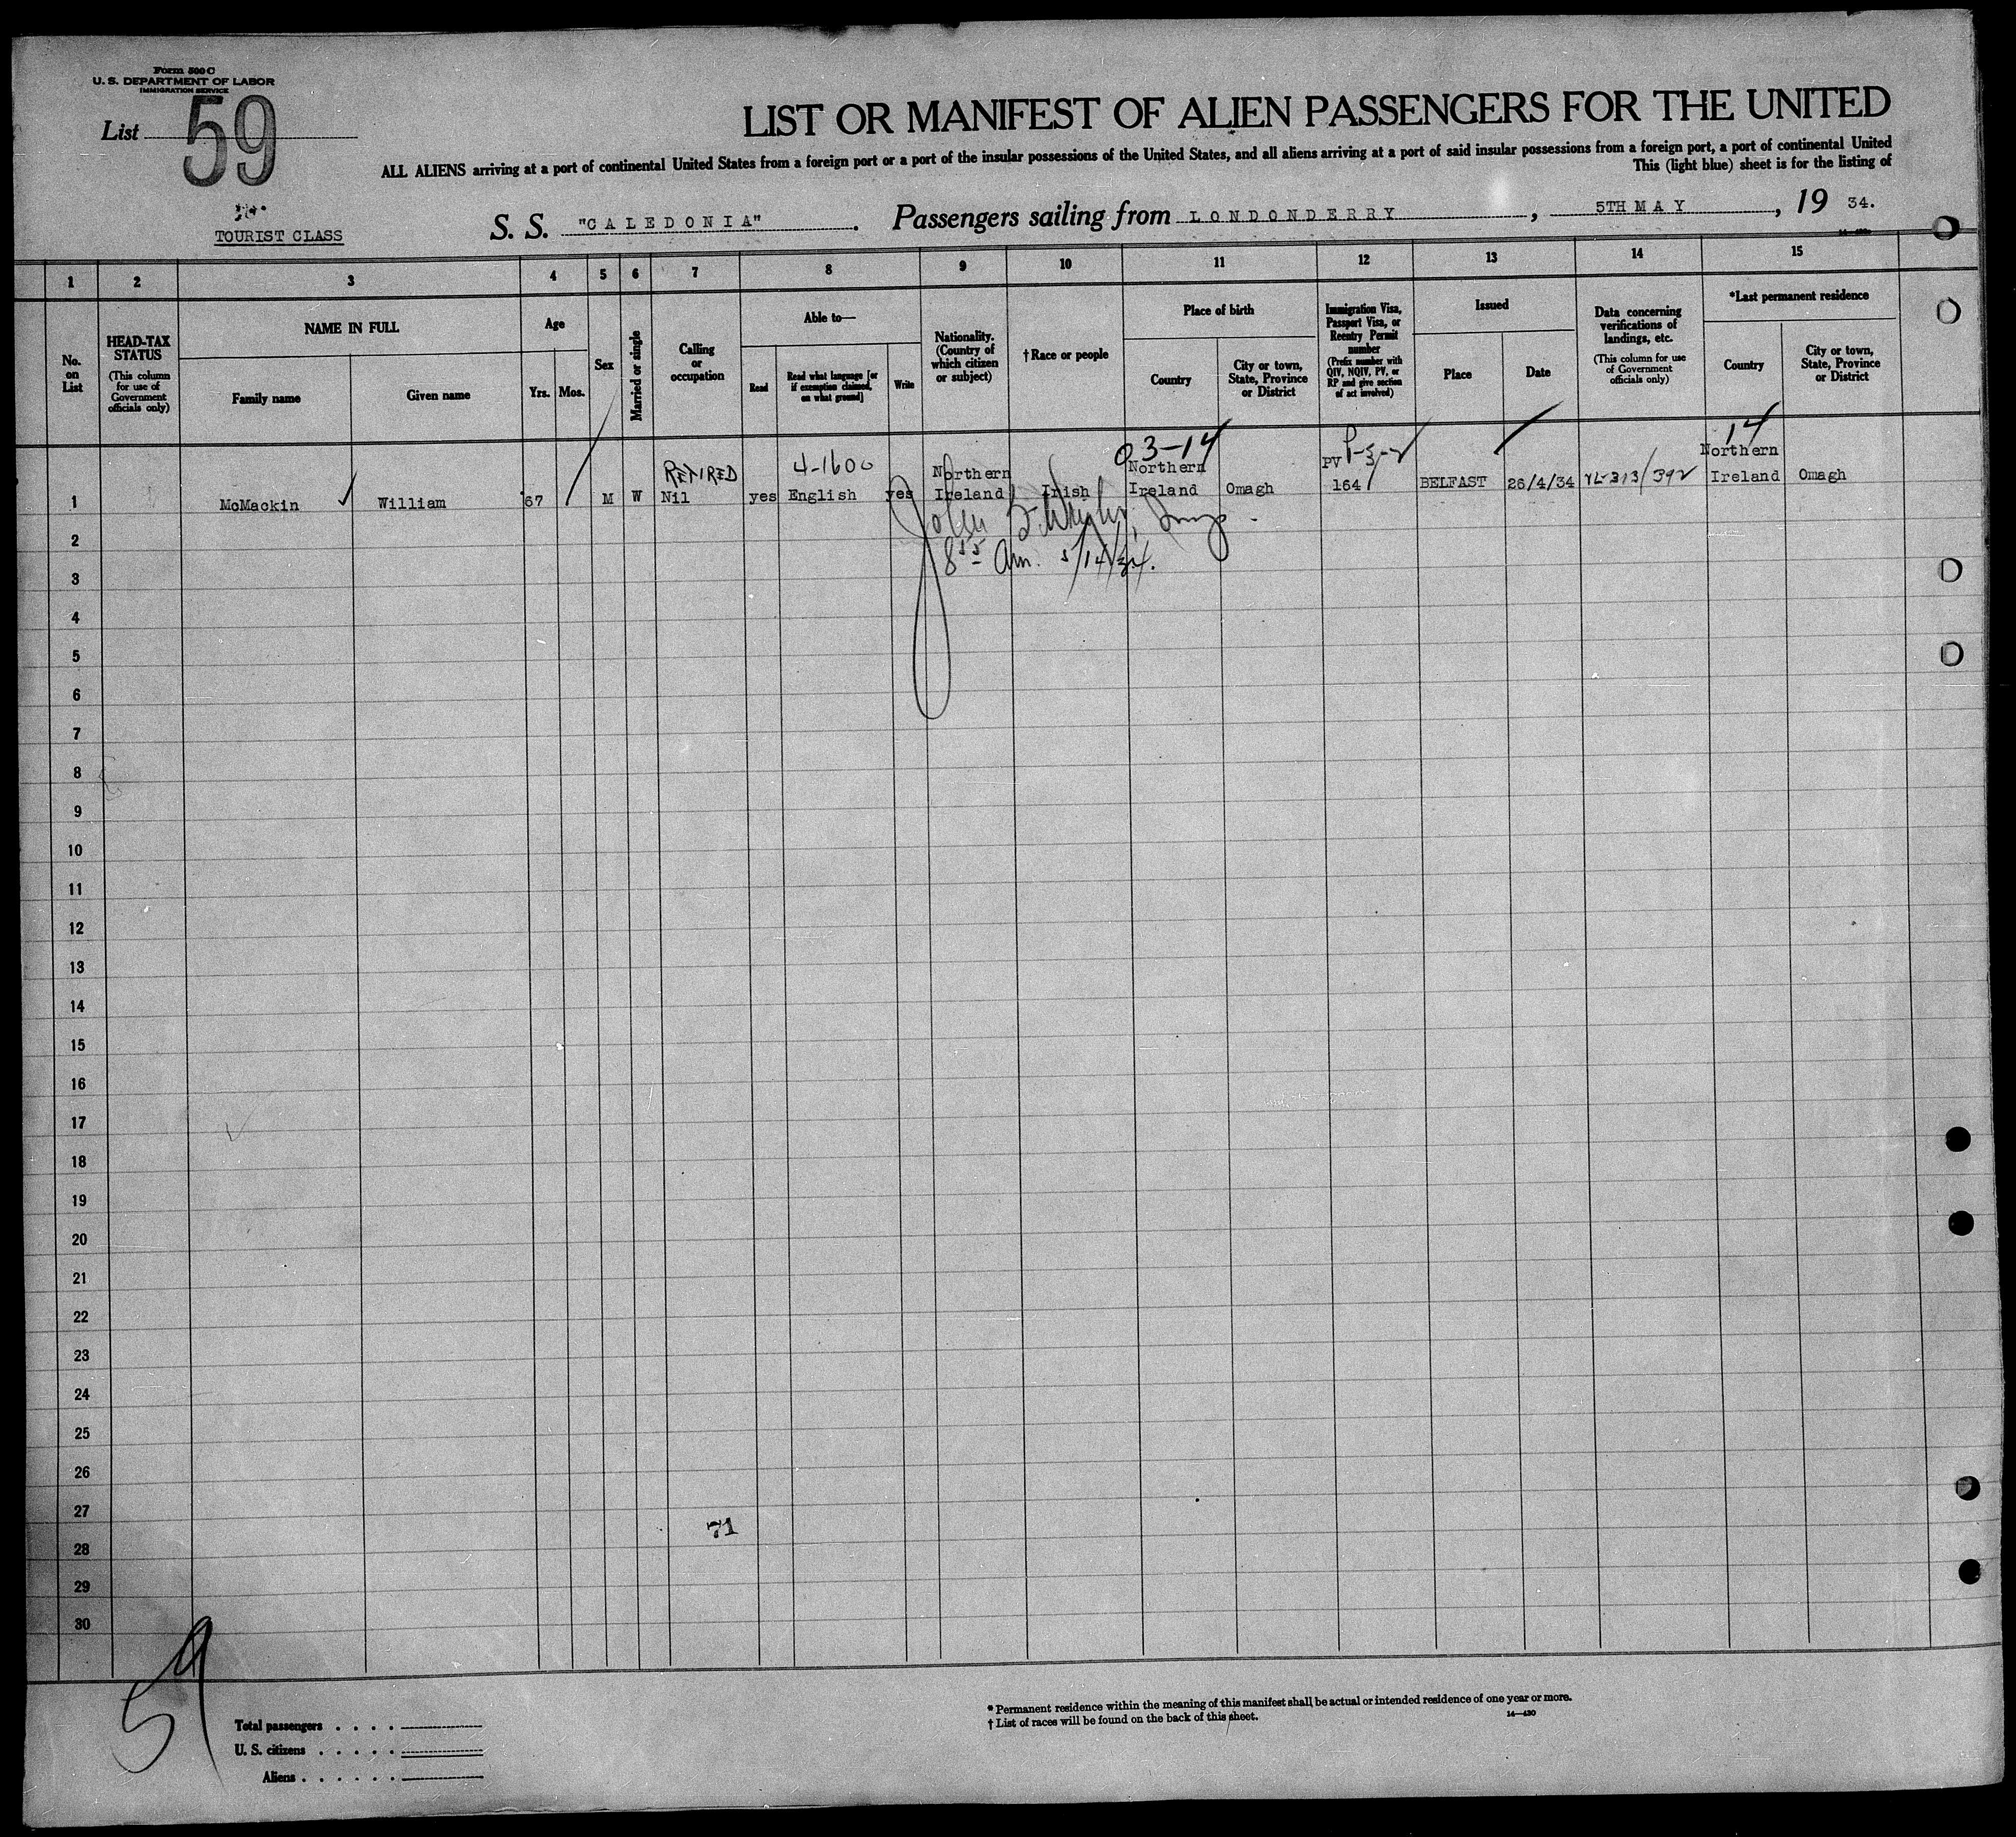 Form 500 C
U. S. DEPARTMENT OF LABOR
IMMIGRATION SERVICE
List 59
LIST OR MANIFEST OF ALIEN PASSENGERS FOR THE UNITED
ALL ALIENS arriving at a port of continental United States from a foreign port or a port of the insular possessions of the United States, and all aliens arriving at a port of said insular possessions from a foreign port, a port of continental United
This (light blue) sheet is for the listing of
TOURIST CLASS
S. S. "CALEDONIA". Passengers sailing from LONDONDERRY, 5TH MAY, 19 34.
1 2 3 4 5 6 7 8 9 10 11 12 13 14 15
No. on List
HEAD-TAX STATUS
(This column for use of Government officials only)
NAME IN FULL
Family name
Given name
Age
Yrs. Mos.
Sex
Married or single
Calling or occupation
Able to—
Read
Read what language [or if exemption claimed, on what ground]
Write
Nationality. (Country of which citizen or subject)
†Race or people
Place of birth
Country
City or town, State, Province or District
Immigration Visa, Passport Visa, or Reentry Permit number
(Prefix number with QIV, NQIV, PV, or RP and give section of act involved)
Issued
Place
Date
Data concerning verifications of landings, etc.
(This column for use of Government officials only)
*Last permanent residence
Country
City or town, State, Province or District
RETIRED 4-1600 Northern 3-14 Northern PV 14 Northern
1 McMackin William 67 M W Nil yes English yes Ireland Irish Ireland Omagh 164 BELFAST 26/4/34 Ireland Omagh
John
2
8 55 Am. 5/14/34.
3
4
5
6
7
8
9
10
11
12
13
14
15
16
17
18
19
20
21
22
23
24
25
26
27
71
28
29
30
59
Total passengers . . . .
U. S. citizens . . . . .
Aliens . . . . . .
* Permanent residence within the meaning of this manifest shall be actual or intended residence of one year or more.
† List of races will be found on the back of this sheet.
14—430